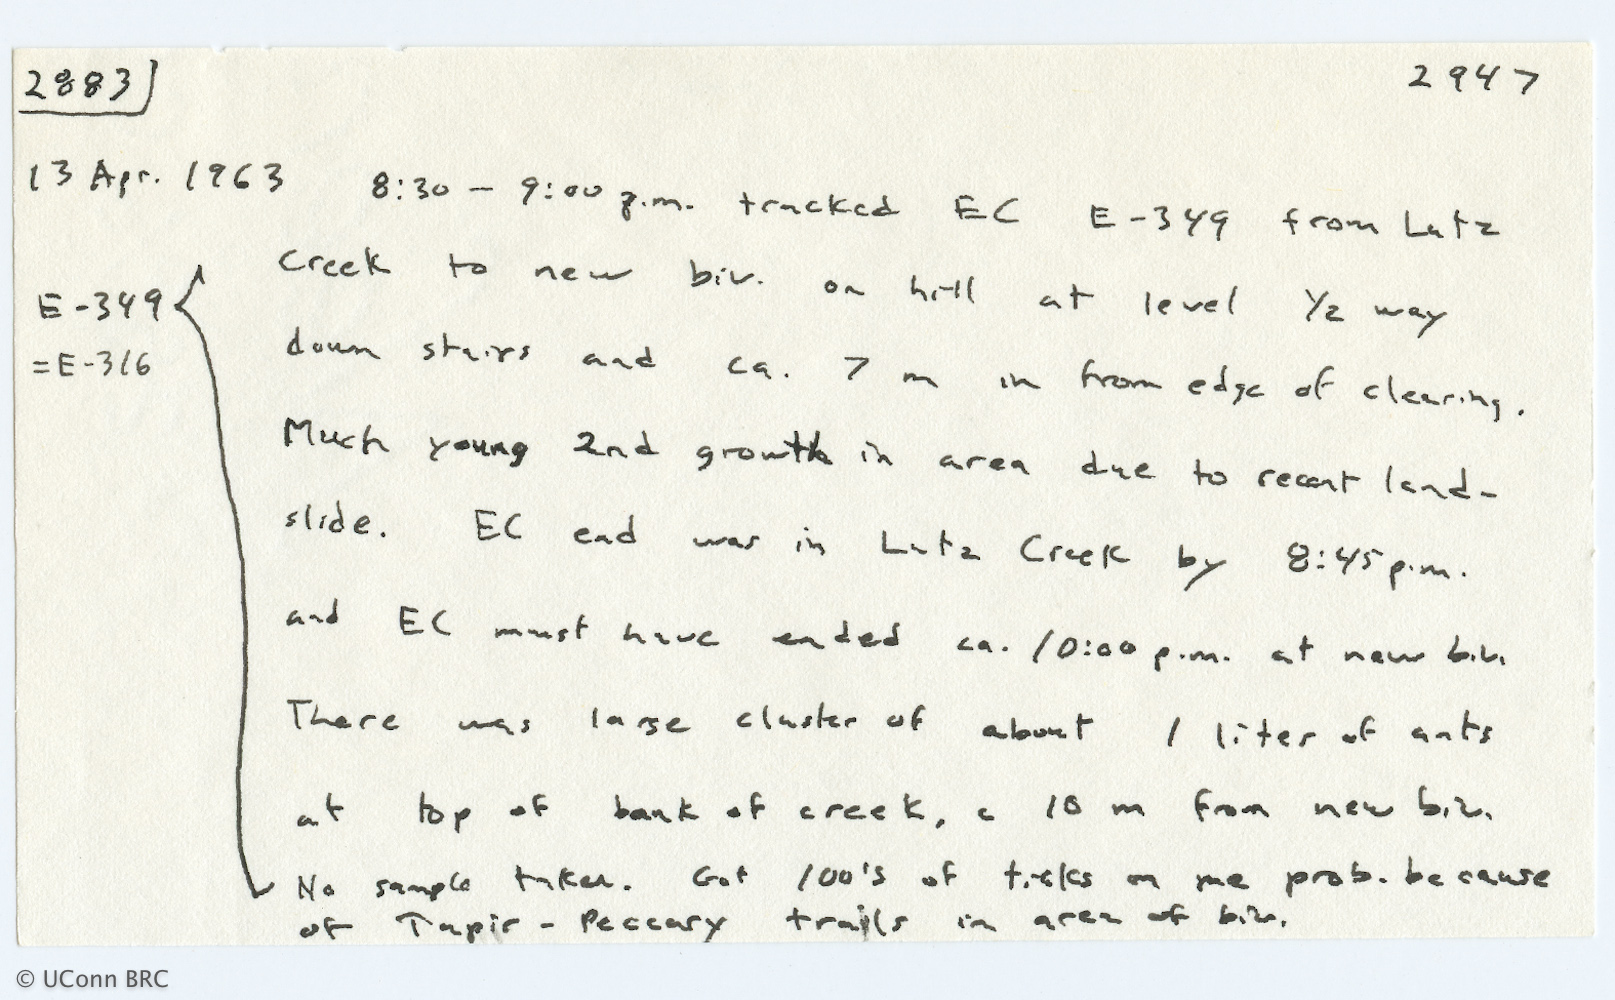 2883 2947
13 Apr. 1963 8:30 - 9:00 p.m. tracked EC E-349 from Lutz
Creek to new biv. on hill at level 1/2 way
E-349
=E-316
down stairs and ca. 7 m in from edge of clearing.
Much young 2nd growth in area due to recent land-
slide. EC end was in Lutz Creek by 8:45 p.m.
and EC must have ended ca. 10:00 p.m. at new biv.
There was large cluster of about 1 liter of ants
at top of bank of creek, c 10 m from new biv.
No sample taken. Got 100's of ticks on me prob. because
of Tapir - Peccary trails in area of biv.
© UConn BRC